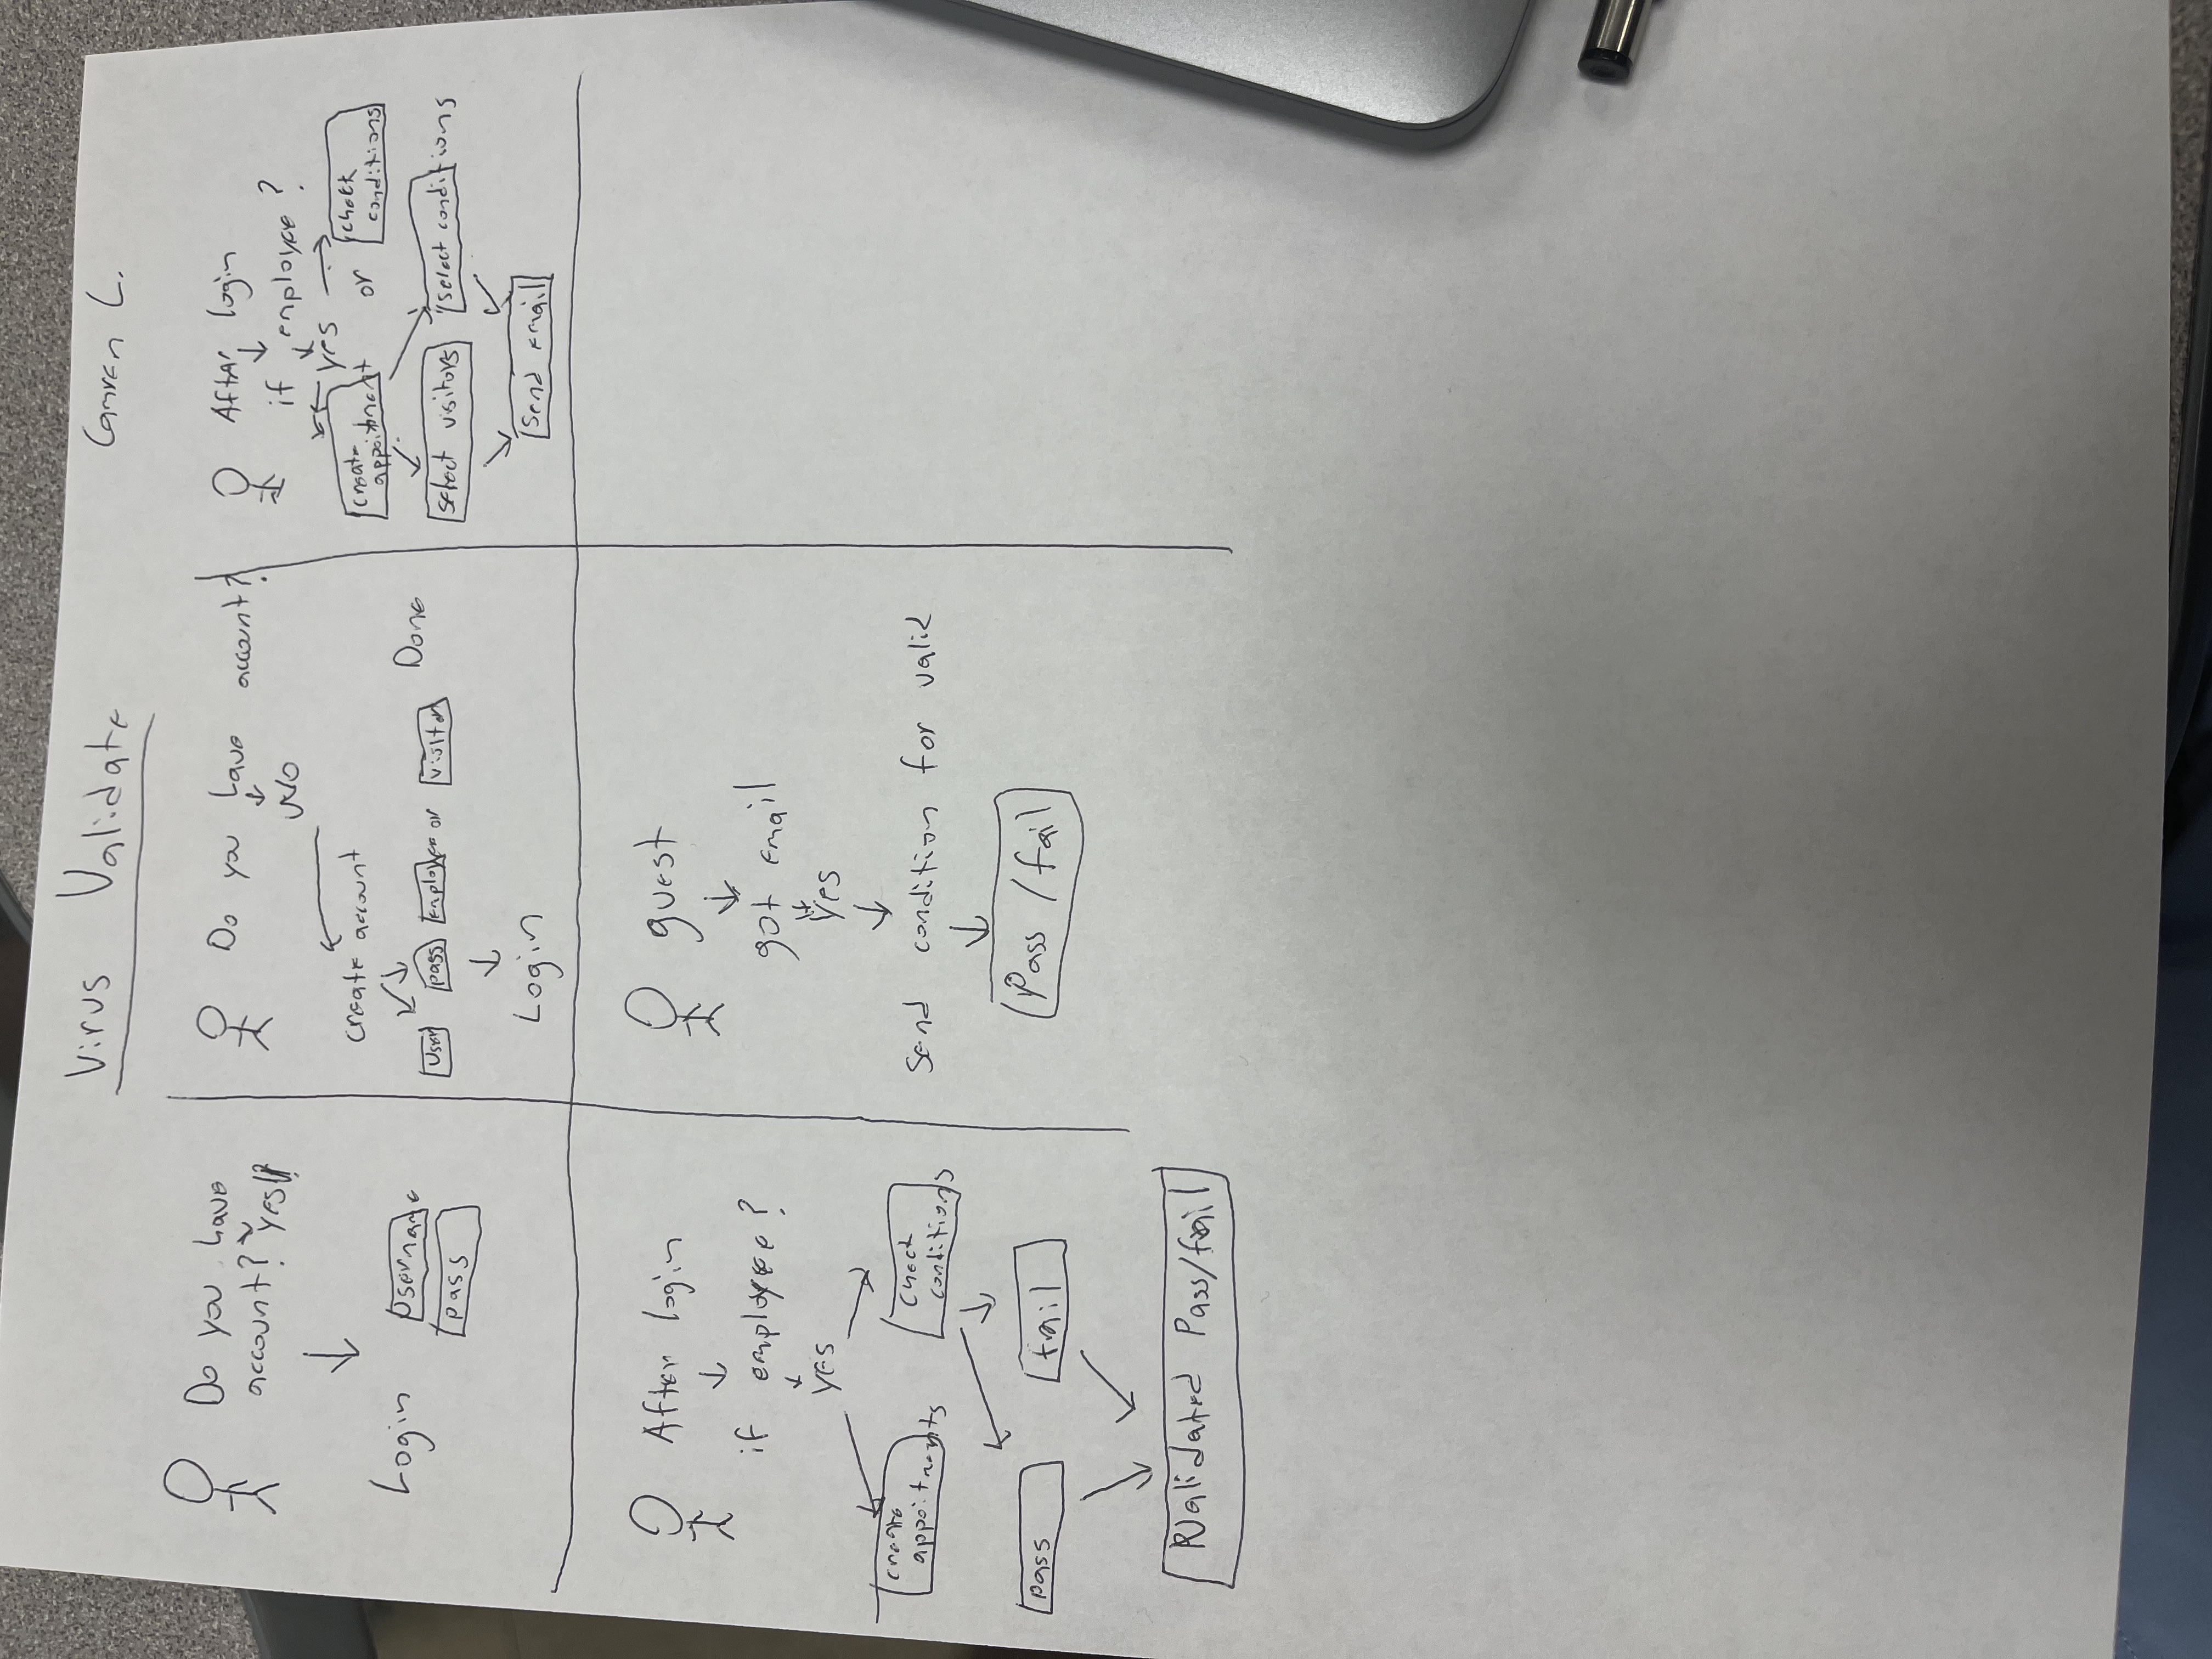 Virus Validate
Camren L.
Do you have
account? yes!!
Login
Username
pass
Do you have account?
No
create account
User pass Employee or visitor Done
Login
After login
if employee?
yes
create
appoitment or check
conditions
select visitors select conditions
Send email
After login
if employee?
yes
create
appoitments
check
conditions
pass fail
Validated Pass/fail
guest
got email
Yes
Send condition for valid
Pass / fail